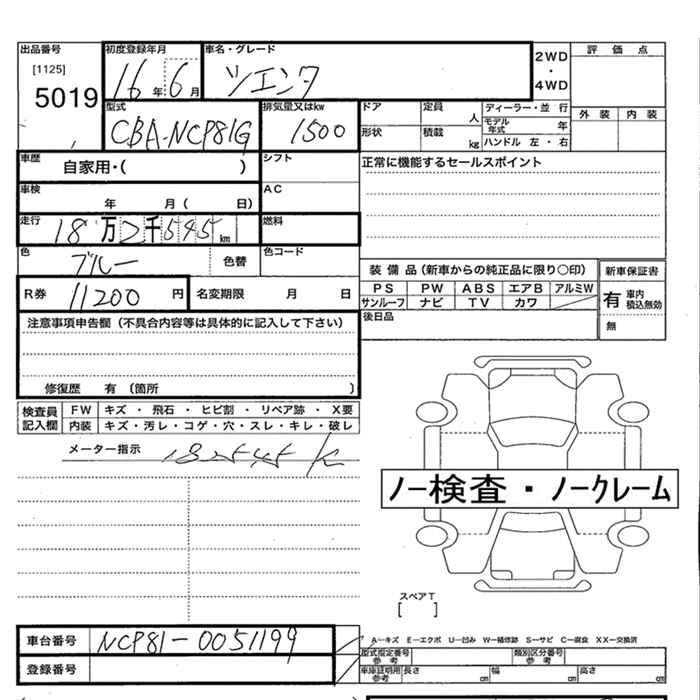 出品番号 初度登録年月 車名・グレード 2WD・4WD 評価点
[1125] 16年 6月 シエンタ
5019 外装 内装
型式 排気量又はkw ドア 定員 人 ディーラー・並行
CBA-NCP81G 1500 モデル年式 年
形状 積載 kg ハンドル 左・右
車歴 自家用・( ) シフト 正常に機能するセールスポイント
車検 年 月( 日) AC
走行 18万2千545km 燃料
色 ブルー 色替 色コード
装備品(新車からの純正品に限り○印) 新車保証書
R券 11200円 名変期限 月 日 PS PW ABS エアB アルミW 有 車内積込無効
サンルーフ ナビ TV カワ
注意事項申告欄(不具合内容等は具体的に記入して下さい) 後日品 無
修復歴 有 (箇所 )
検査員記入欄 FW キズ・飛石・ヒビ割・リペア跡・X要
内装 キズ・汚レ・コゲ・穴・スレ・キレ・破レ
メーター指示 182545 K
ノー検査・ノークレーム
スペアT
[ ]
車台番号 NCP81-0051199 A―キズ E―エクボ U―凹み W―補修跡 S―サビ C―腐食 XX―交換済
型式指定番号 参考 類別区分番号 参考
登録番号 車庫証明用参考 長さ cm 幅 cm 高さ cm